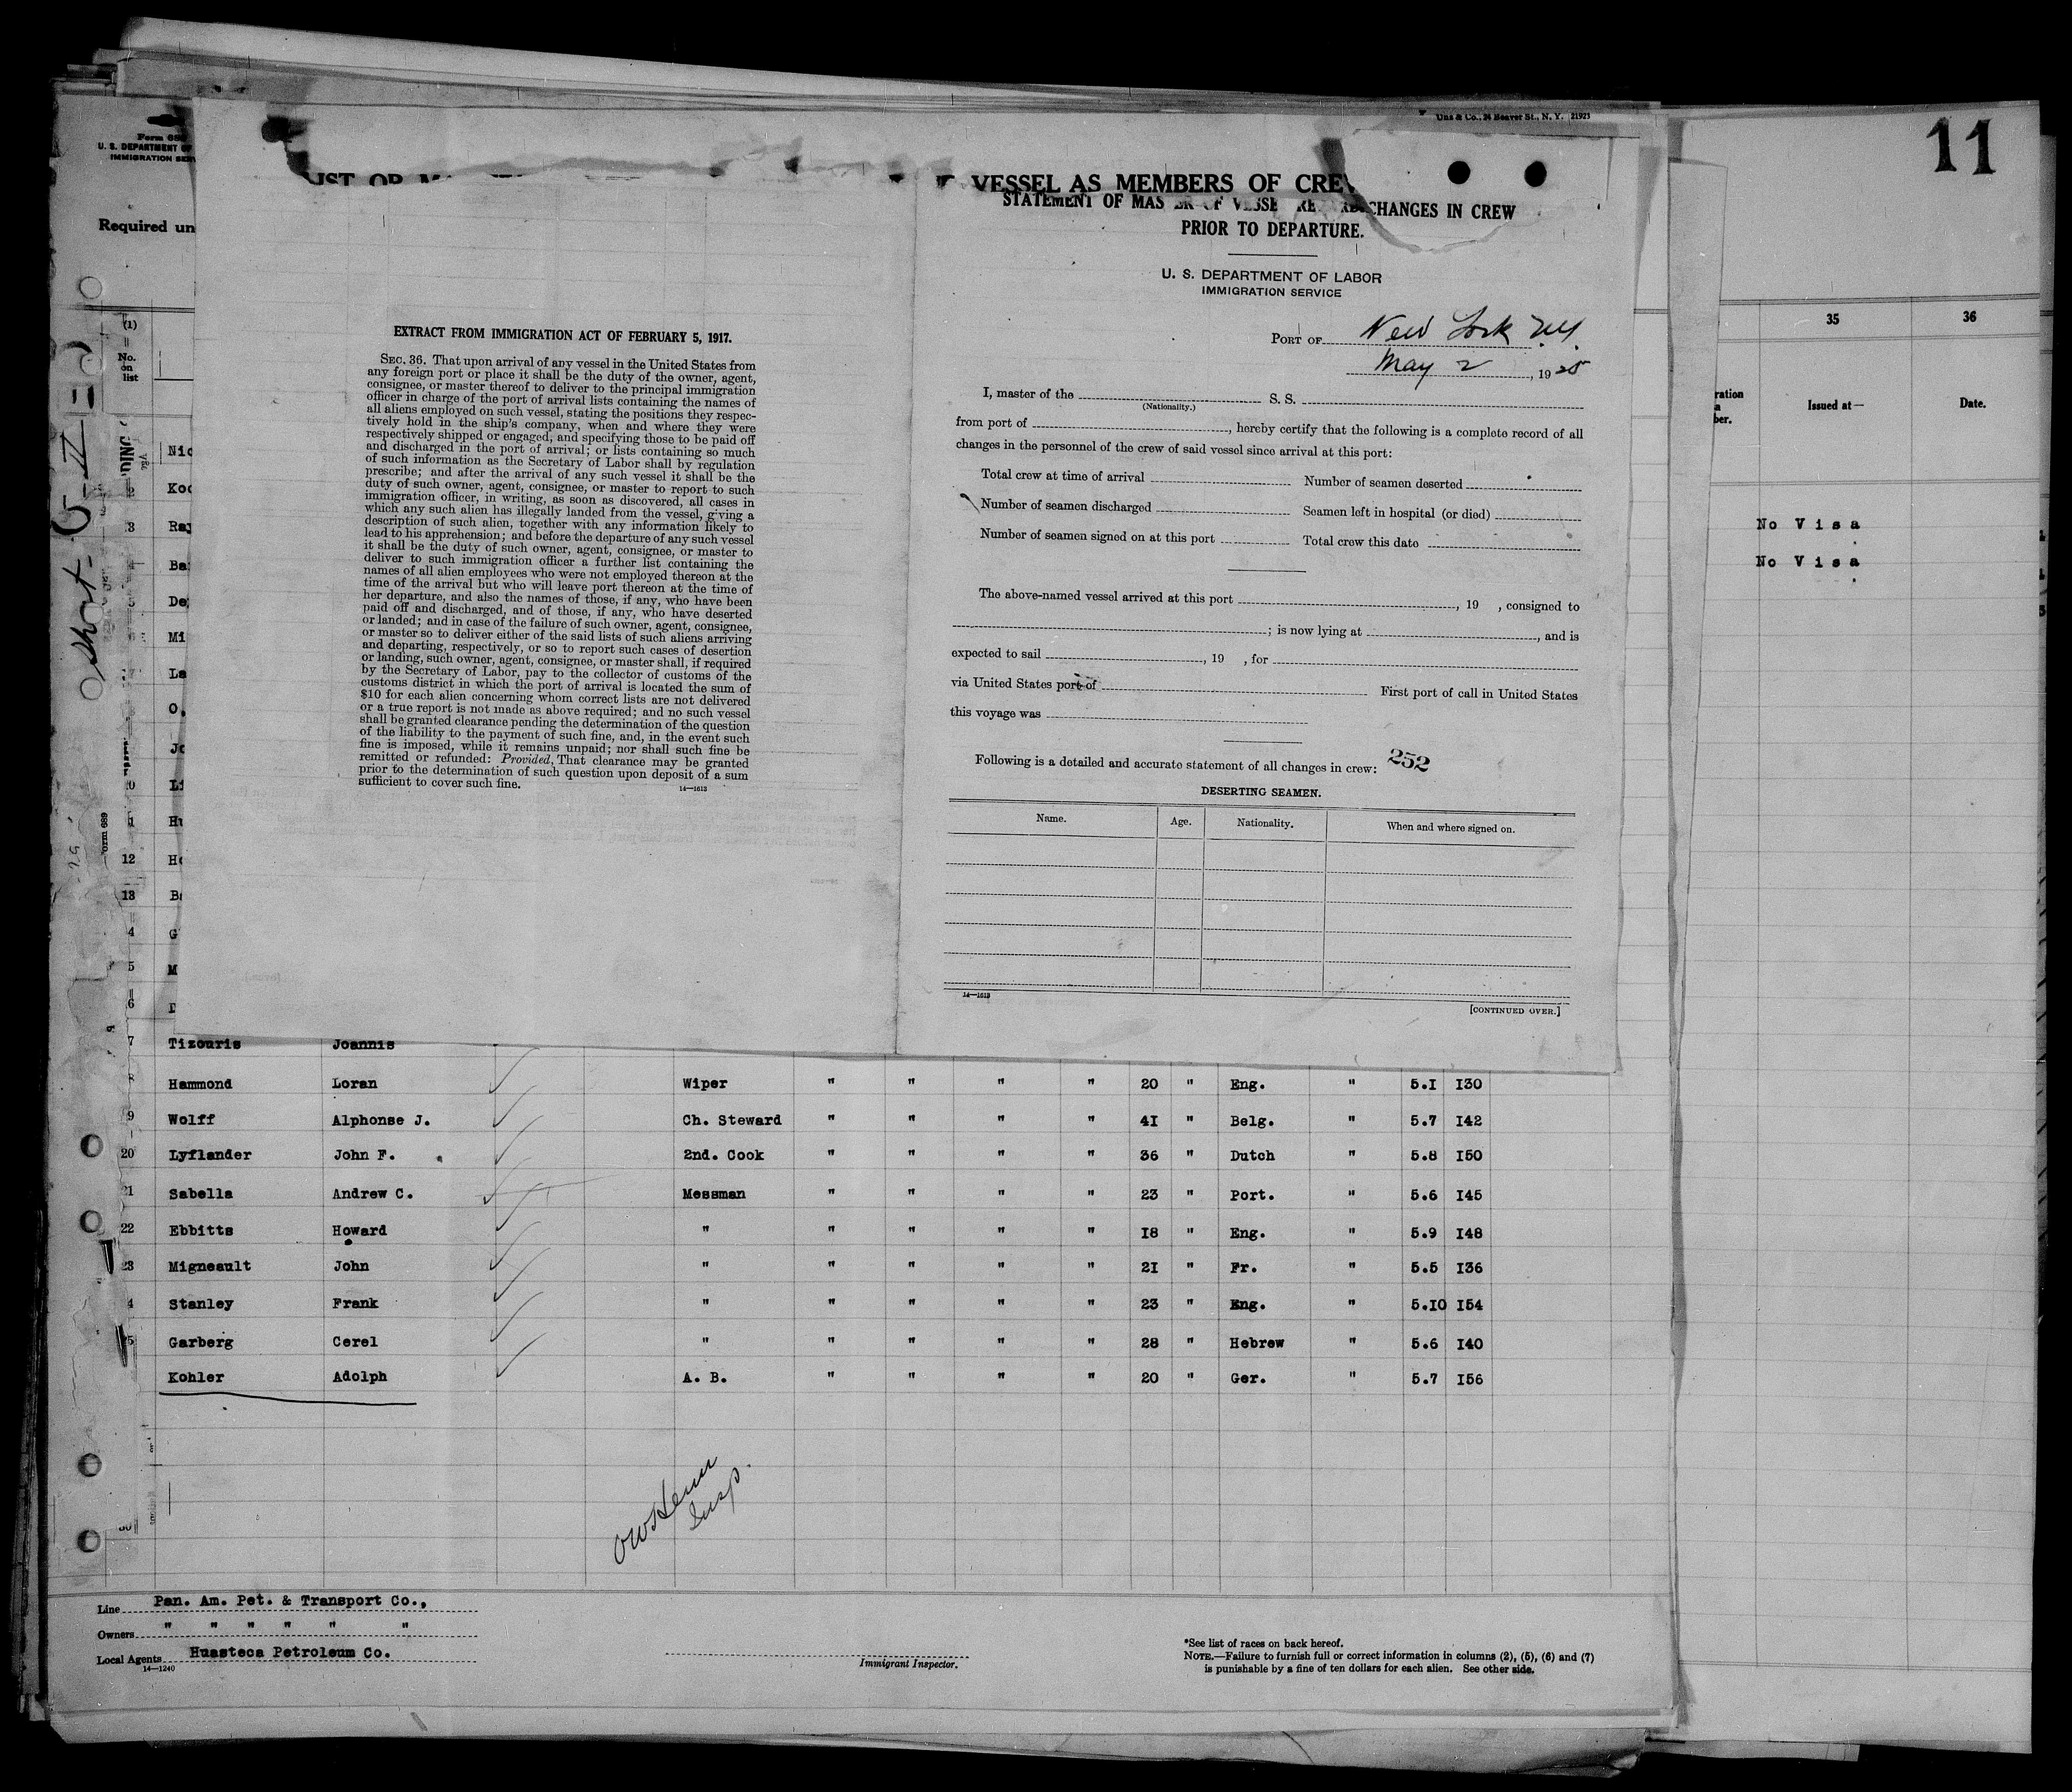 11
Uns & Co., 24 Beaver St., N. Y. 21923
U. S. DEPARTMENT OF
IMMIGRATION SER
Required un
VESSEL AS MEMBERS OF CREW
STATEMENT OF MASTER OF VESSEL CHANGES IN CREW
PRIOR TO DEPARTURE.
U. S. DEPARTMENT OF LABOR
IMMIGRATION SERVICE
PORT OF New York N.Y.
May 2, 1925
I, master of the (Nationality.) S. S.
from port of , hereby certify that the following is a complete record of all
changes in the personnel of the crew of said vessel since arrival at this port:
Total crew at time of arrival Number of seamen deserted
Number of seamen discharged Seamen left in hospital (or died)
Number of seamen signed on at this port Total crew this date
The above-named vessel arrived at this port , 19 , consigned to
; is now lying at , and is
expected to sail , 19 , for
via United States port of First port of call in United States
this voyage was
Following is a detailed and accurate statement of all changes in crew: 252
DESERTING SEAMEN.
Name. Age. Nationality. When and where signed on.
14—1613
[CONTINUED OVER.]
EXTRACT FROM IMMIGRATION ACT OF FEBRUARY 5, 1917.
SEC. 36. That upon arrival of any vessel in the United States from
any foreign port or place it shall be the duty of the owner, agent,
consignee, or master thereof to deliver to the principal immigration
officer in charge of the port of arrival lists containing the names of
all aliens employed on such vessel, stating the positions they respec-
tively hold in the ship's company, when and where they were
respectively shipped or engaged, and specifying those to be paid off
and discharged in the port of arrival; or lists containing so much
of such information as the Secretary of Labor shall by regulation
prescribe; and after the arrival of any such vessel it shall be the
duty of such owner, agent, consignee, or master to report to such
immigration officer, in writing, as soon as discovered, all cases in
which any such alien has illegally landed from the vessel, giving a
description of such alien, together with any information likely to
lead to his apprehension; and before the departure of any such vessel
it shall be the duty of such owner, agent, consignee, or master to
deliver to such immigration officer a further list containing the
names of all alien employees who were not employed thereon at the
time of the arrival but who will leave port thereon at the time of
her departure, and also the names of those, if any, who have been
paid off and discharged, and of those, if any, who have deserted
or landed; and in case of the failure of such owner, agent, consignee,
or master so to deliver either of the said lists of such aliens arriving
and departing, respectively, or so to report such cases of desertion
or landing, such owner, agent, consignee, or master shall, if required
by the Secretary of Labor, pay to the collector of customs of the
customs district in which the port of arrival is located the sum of
$10 for each alien concerning whom correct lists are not delivered
or a true report is not made as above required; and no such vessel
shall be granted clearance pending the determination of the question
of the liability to the payment of such fine, and, in the event such
fine is imposed, while it remains unpaid; nor shall such fine be
remitted or refunded: Provided, That clearance may be granted
prior to the determination of such question upon deposit of a sum
sufficient to cover such fine.
14—1613
35 36
Issued at— Date.
No Visa
No Visa
(1)
No. on list
7 Tizouris Joannis
8 Hammond Loran Wiper " " " " 20 " Eng. " 5.1 130
9 Wolff Alphonse J. Ch. Steward " " " " 41 " Belg. " 5.7 142
20 Lyflander John F. 2nd. Cook " " " " 36 " Dutch " 5.8 150
21 Sabella Andrew C. Messman " " " " 23 " Port. " 5.6 145
22 Ebbitts Howard " " " " " 18 " Eng. " 5.9 148
23 Migneault John " " " " " 21 " Fr. " 5.5 136
4 Stanley Frank " " " " " 23 " Eng. " 5.10 154
5 Garberg Cerel " " " " " 28 " Hebrew " 5.6 140
Kohler Adolph A. B. " " " " 20 " Ger. " 5.7 156
Insp.
Line Pan. Am. Pet. & Transport Co.,
Owners " " " " " "
Local Agents Huasteca Petroleum Co.
14—1240
Immigrant Inspector.
*See list of races on back hereof.
NOTE.—Failure to furnish full or correct information in columns (2), (5), (6) and (7)
is punishable by a fine of ten dollars for each alien. See other side.